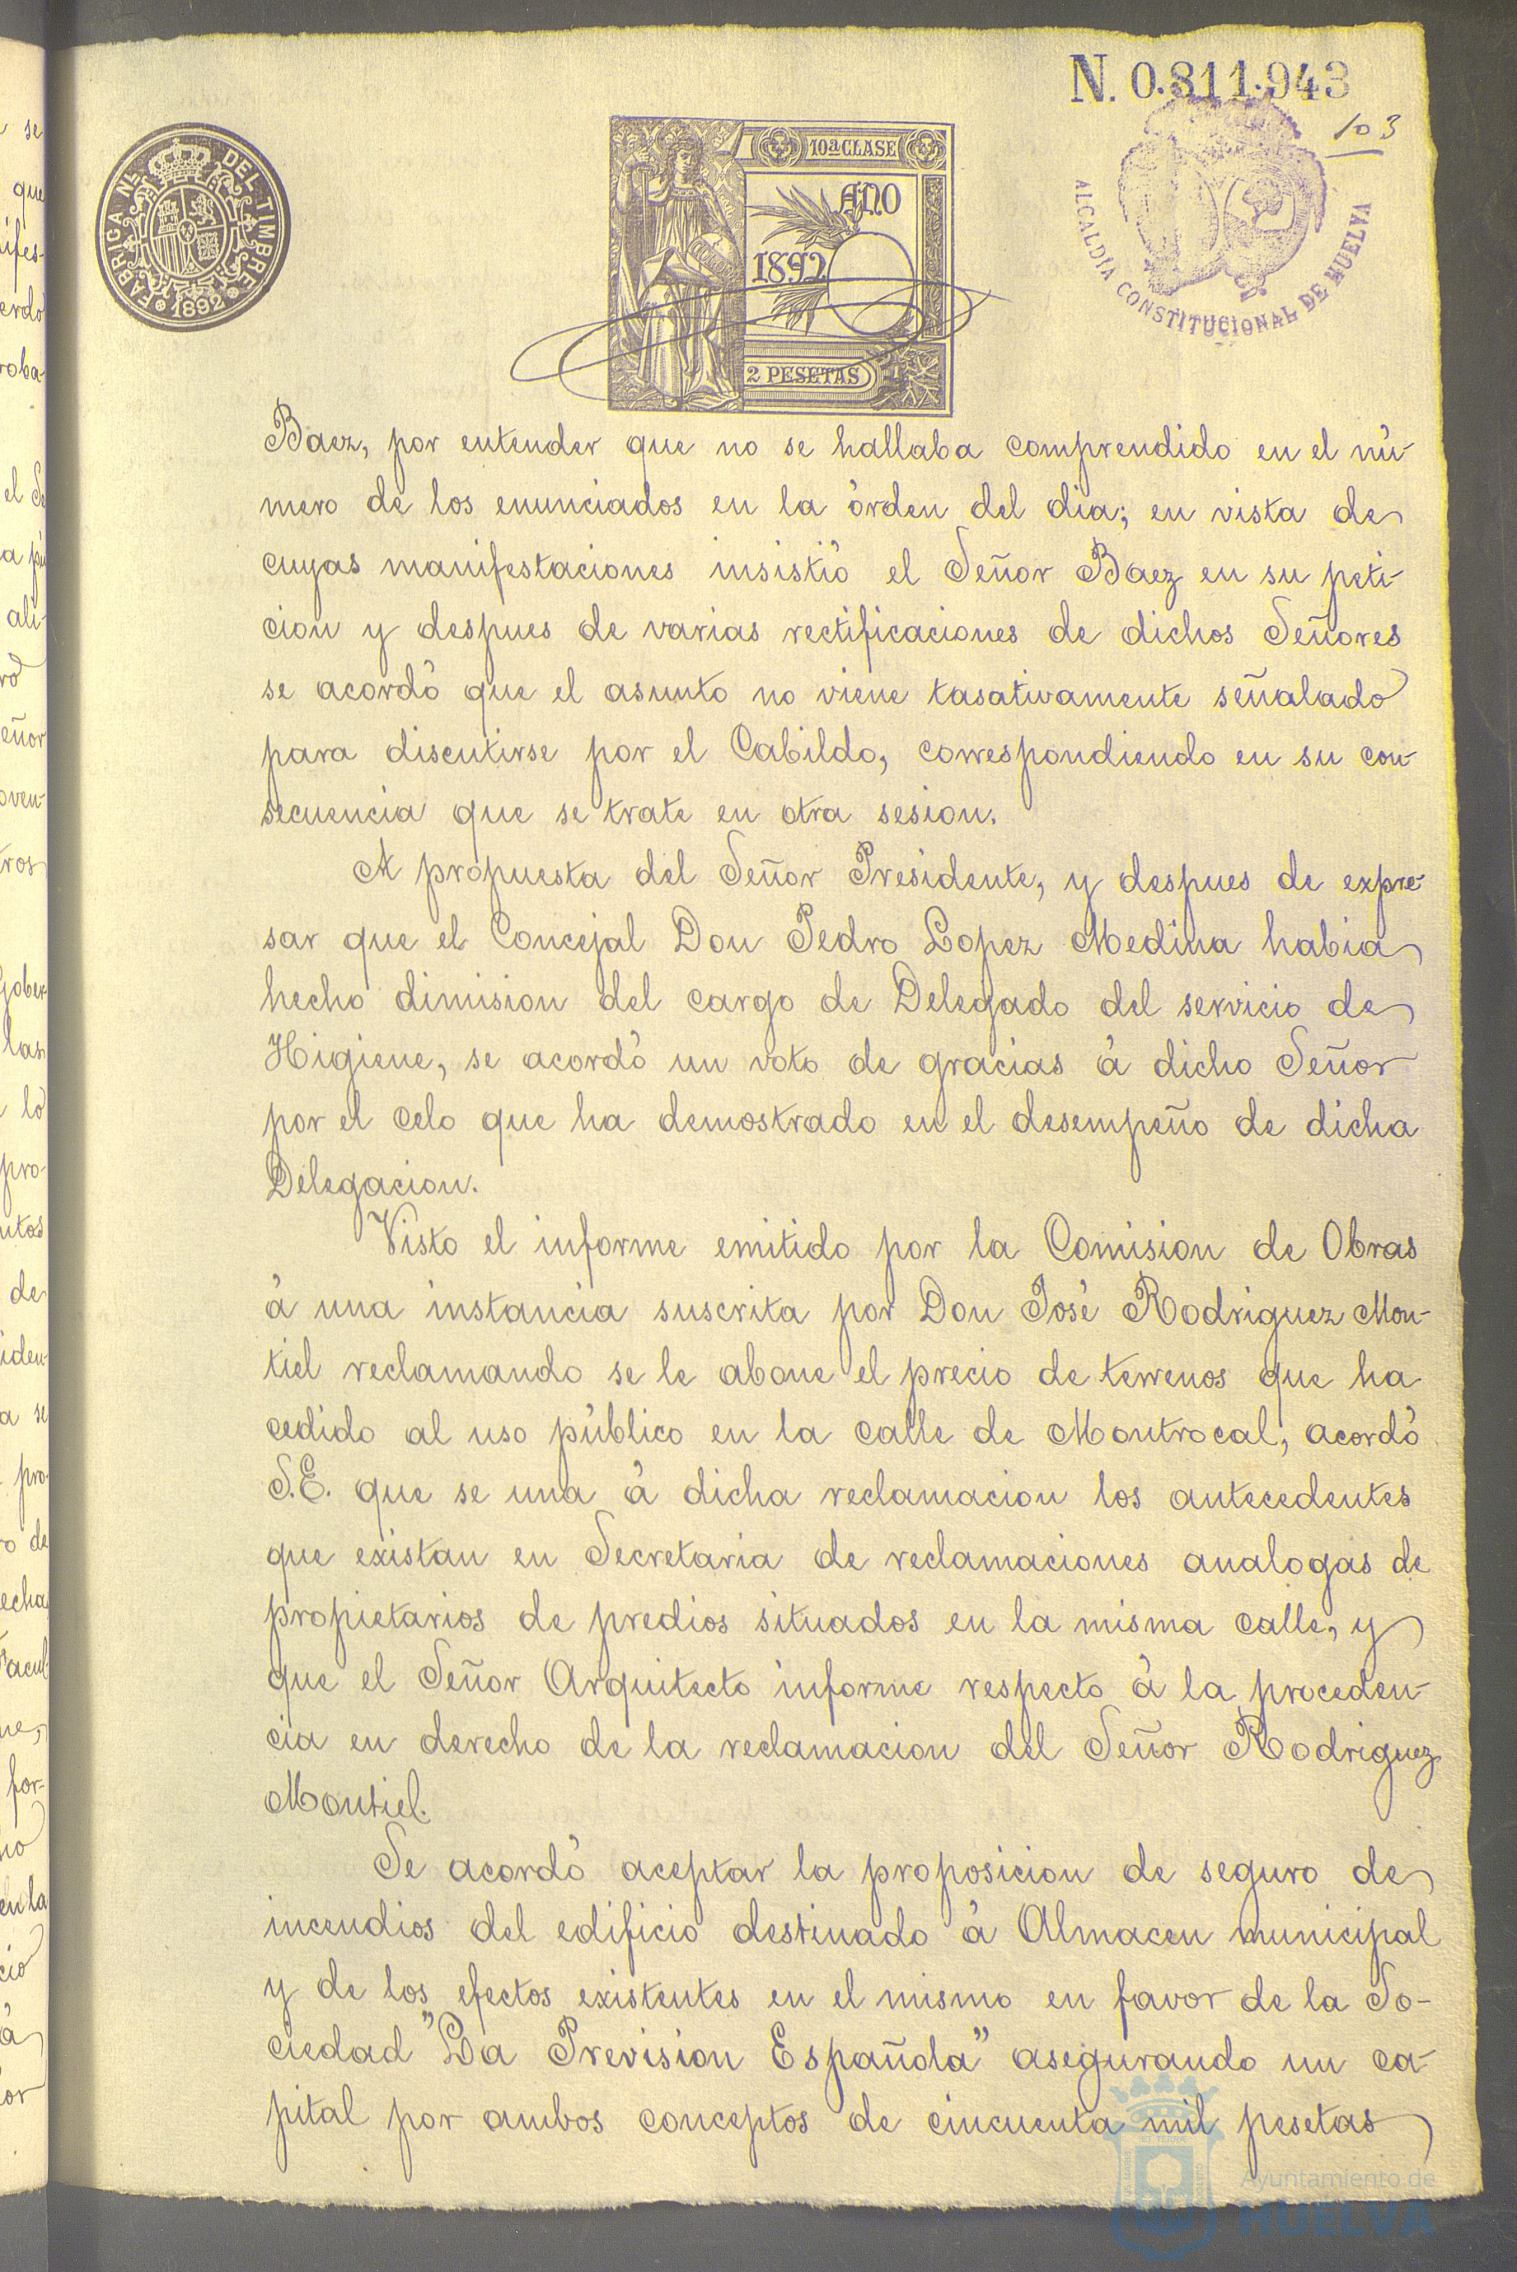 N. 0.811.943
103
FABRICA Nal. DEL TIMBRE
1892
10ª CLASE
AÑO
1892
2 PESETAS
ALCALDÍA CONSTITUCIONAL DE HUELVA
Baez, por entender que no se hallaba comprendido en el nú-
mero de los enunciados en la órden del dia; en vista de
cuyas manifestaciones insistió el Señor Baez en su peti-
cion y despues de varias rectificaciones de dichos Señores
se acordó que el asunto no viene tasativamente señalado
para discutirse por el Cabildo, correspondiendo en su con-
secuencia que se trate en otra sesion.
A propuesta del Señor Presidente, y despues de expre-
sar que el Concejal Don Pedro Lopez Medina habia
hecho dimision del cargo de Delegado del servicio de
Higiene, se acordó un voto de gracias á dicho Señor
por el celo que ha demostrado en el desempeño de dicha
Delegacion.
Visto el informe emitido por la Comision de Obras
á una instancia suscrita por Don José Rodriguez Mon-
tiel reclamando se le abone el precio de terrenos que ha
cedido al uso público en la calle de Montrocal, acordó
S.E. que se una á dicha reclamacion los antecedentes
que existan en Secretaria de reclamaciones analogas de
propietarios de predios situados en la misma calle, y
que el Señor Arquitecto informe respecto á la proceden-
cia en derecho de la reclamacion del Señor Rodriguez
Montiel.
Se acordó aceptar la proposicion de seguro de
incendios del edificio destinado á Almacen municipal
y de los efectos existentes en el mismo en favor de la So-
ciedad "La Prevision Española" asegurando un ca-
pital por ambos conceptos de cincuenta mil pesetas
Ayuntamiento de
HUELVA